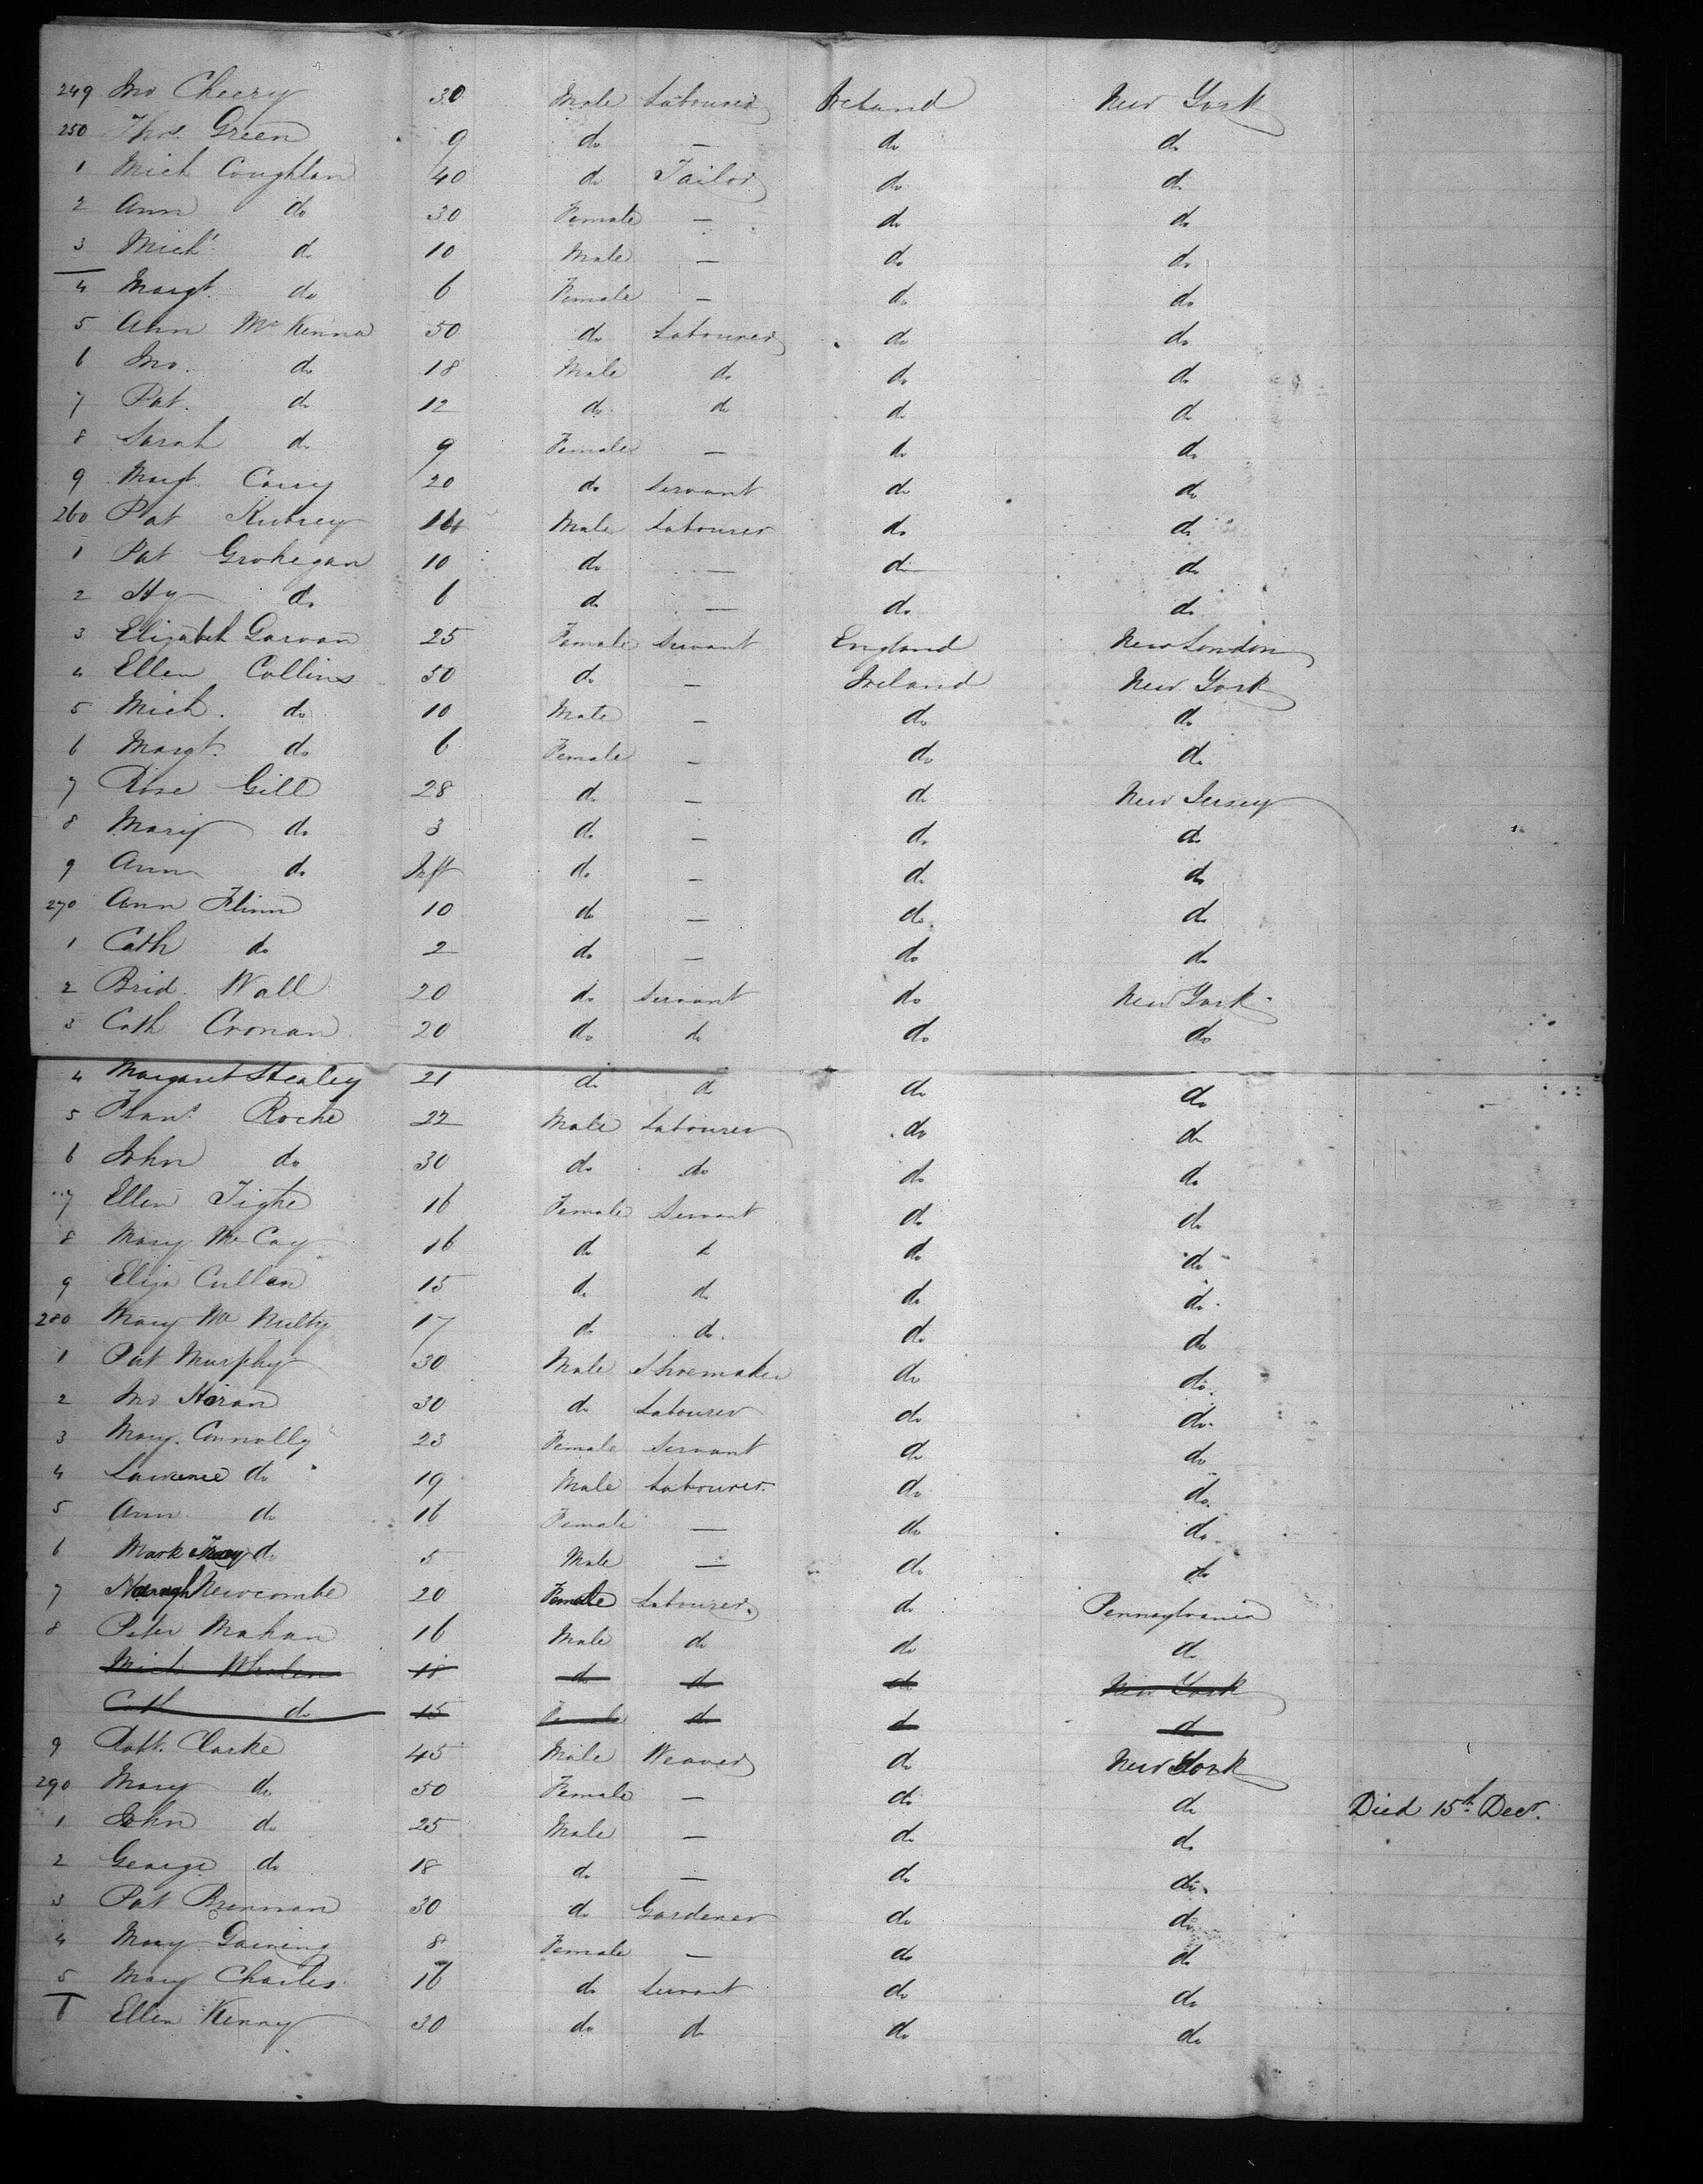 249 Jno Cheery 30 Male Labourer Ireland New York
250 Thos. Green 9 do — do do
1 Mich Coughlan 40 do Tailor do do
2 Ann do 30 Female — do do
3 Michl. do 10 Male — do do
4 Margt. do 6 Female — do do
5 Ann McKenna 50 do Labourer do do
6 Jno. do 18 Male do do do
7 Pat. do 12 do do do do
8 Sarah do 9 Female — do do
9 Margt. 20 do Servant do do
260 Pat Male Labourer do do
1 Pat Grohegan 10 do — do do
2 Hy do 6 do — do do
3 Elizabeth Garvan 25 Female Servant England New London
4 Ellen Collins 50 do — Ireland New York
5 Mich. do 10 Male — do do
6 Margt. do 6 Female — do do
7 Rose Gill 28 do — do New Jersey
8 Mary do 3 do — do do
9 Ann do Inft do — do do
270 Ann Flinn 10 do — do do
1 Cath do 2 do — do do
2 Brid. Wall 20 do Servant do New York
3 Cath Cronan 20 do do do do
4 Margaret Healey 21 do do do do
5 Frans. Roche 22 Male Labourer do do
6 John do 30 do do do do
7 Ellen Tighe 16 Female Servant do do
8 Mary McCay 16 do do do do
9 Eliza Cullen 15 do do do do
280 Mary McNulty 17 do do do do
1 Pat Murphy 30 Male Shoemaker do do
2 Jno Horan 30 do Labourer do do
3 Mary Connolly 23 Female Servant do do
4 Lawrence do 19 Male Labourer do do
5 Ann do 16 Female — do do
6 Mark do 5 Male — do do
7 Newcombe 20 Female Labourer do Pennsylvania
8 Peter Mahan 16 Male do do do
Mich Whalen 18 do do do New York
Cath do 15 Female do do do
9 Robt. Clarke 45 Male Weaver do New York
290 Mary do 50 Female — do do Died 15th Decr.
1 John do 25 Male — do do
2 George do 18 do — do do
3 Pat Brennan 30 do Gardener do do
4 Mary 8 Female — do do
5 Mary Charles 16 do Servant do do
6 Ellen Kenny 30 do do do do